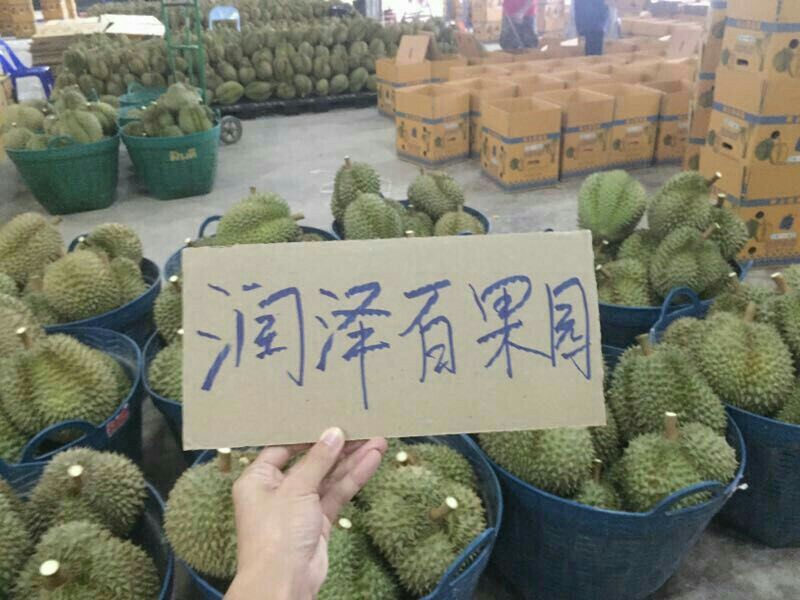 润泽百果园